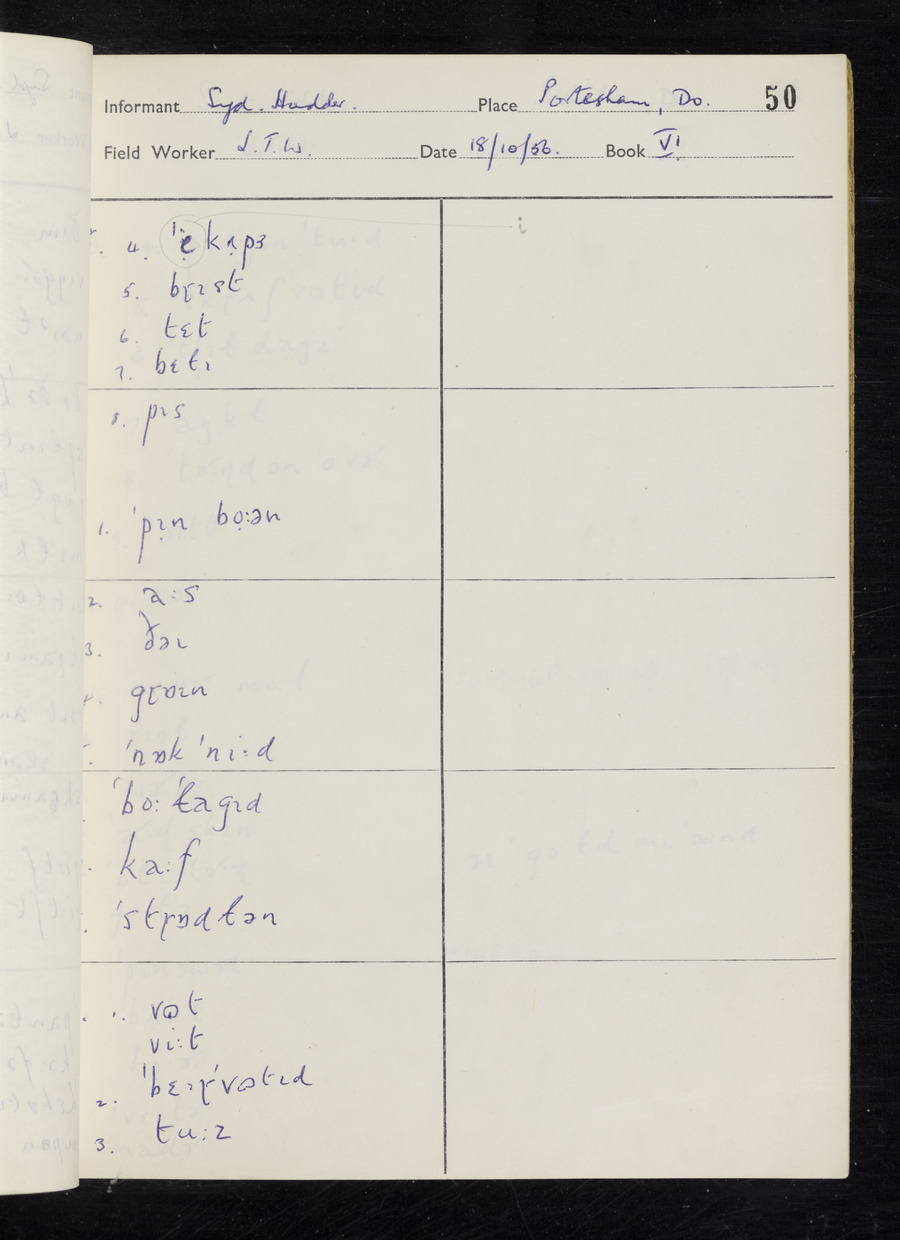 Informant Syd. Hodder. Place Portesham, Do. 50
Field Worker J.T.W. Date 18/10/56. Book VI
4. ˈẹkɪ̣pɜ i
5. bɽɪst
6. tɛt
7. bɛtɪ
8. pɪs
1. ˈpɪ̣n bọ:ən
2. a:s
3. ðəɪ
gɽɒɪn
ˈnɒk ˈni:d
ˈbo: ˈlagɪd
ka:f
ˈstɽɒdlən
1. vɷt
vi:t
2. ˈbɛɪɽˈvɷtɪd
3. tu:z